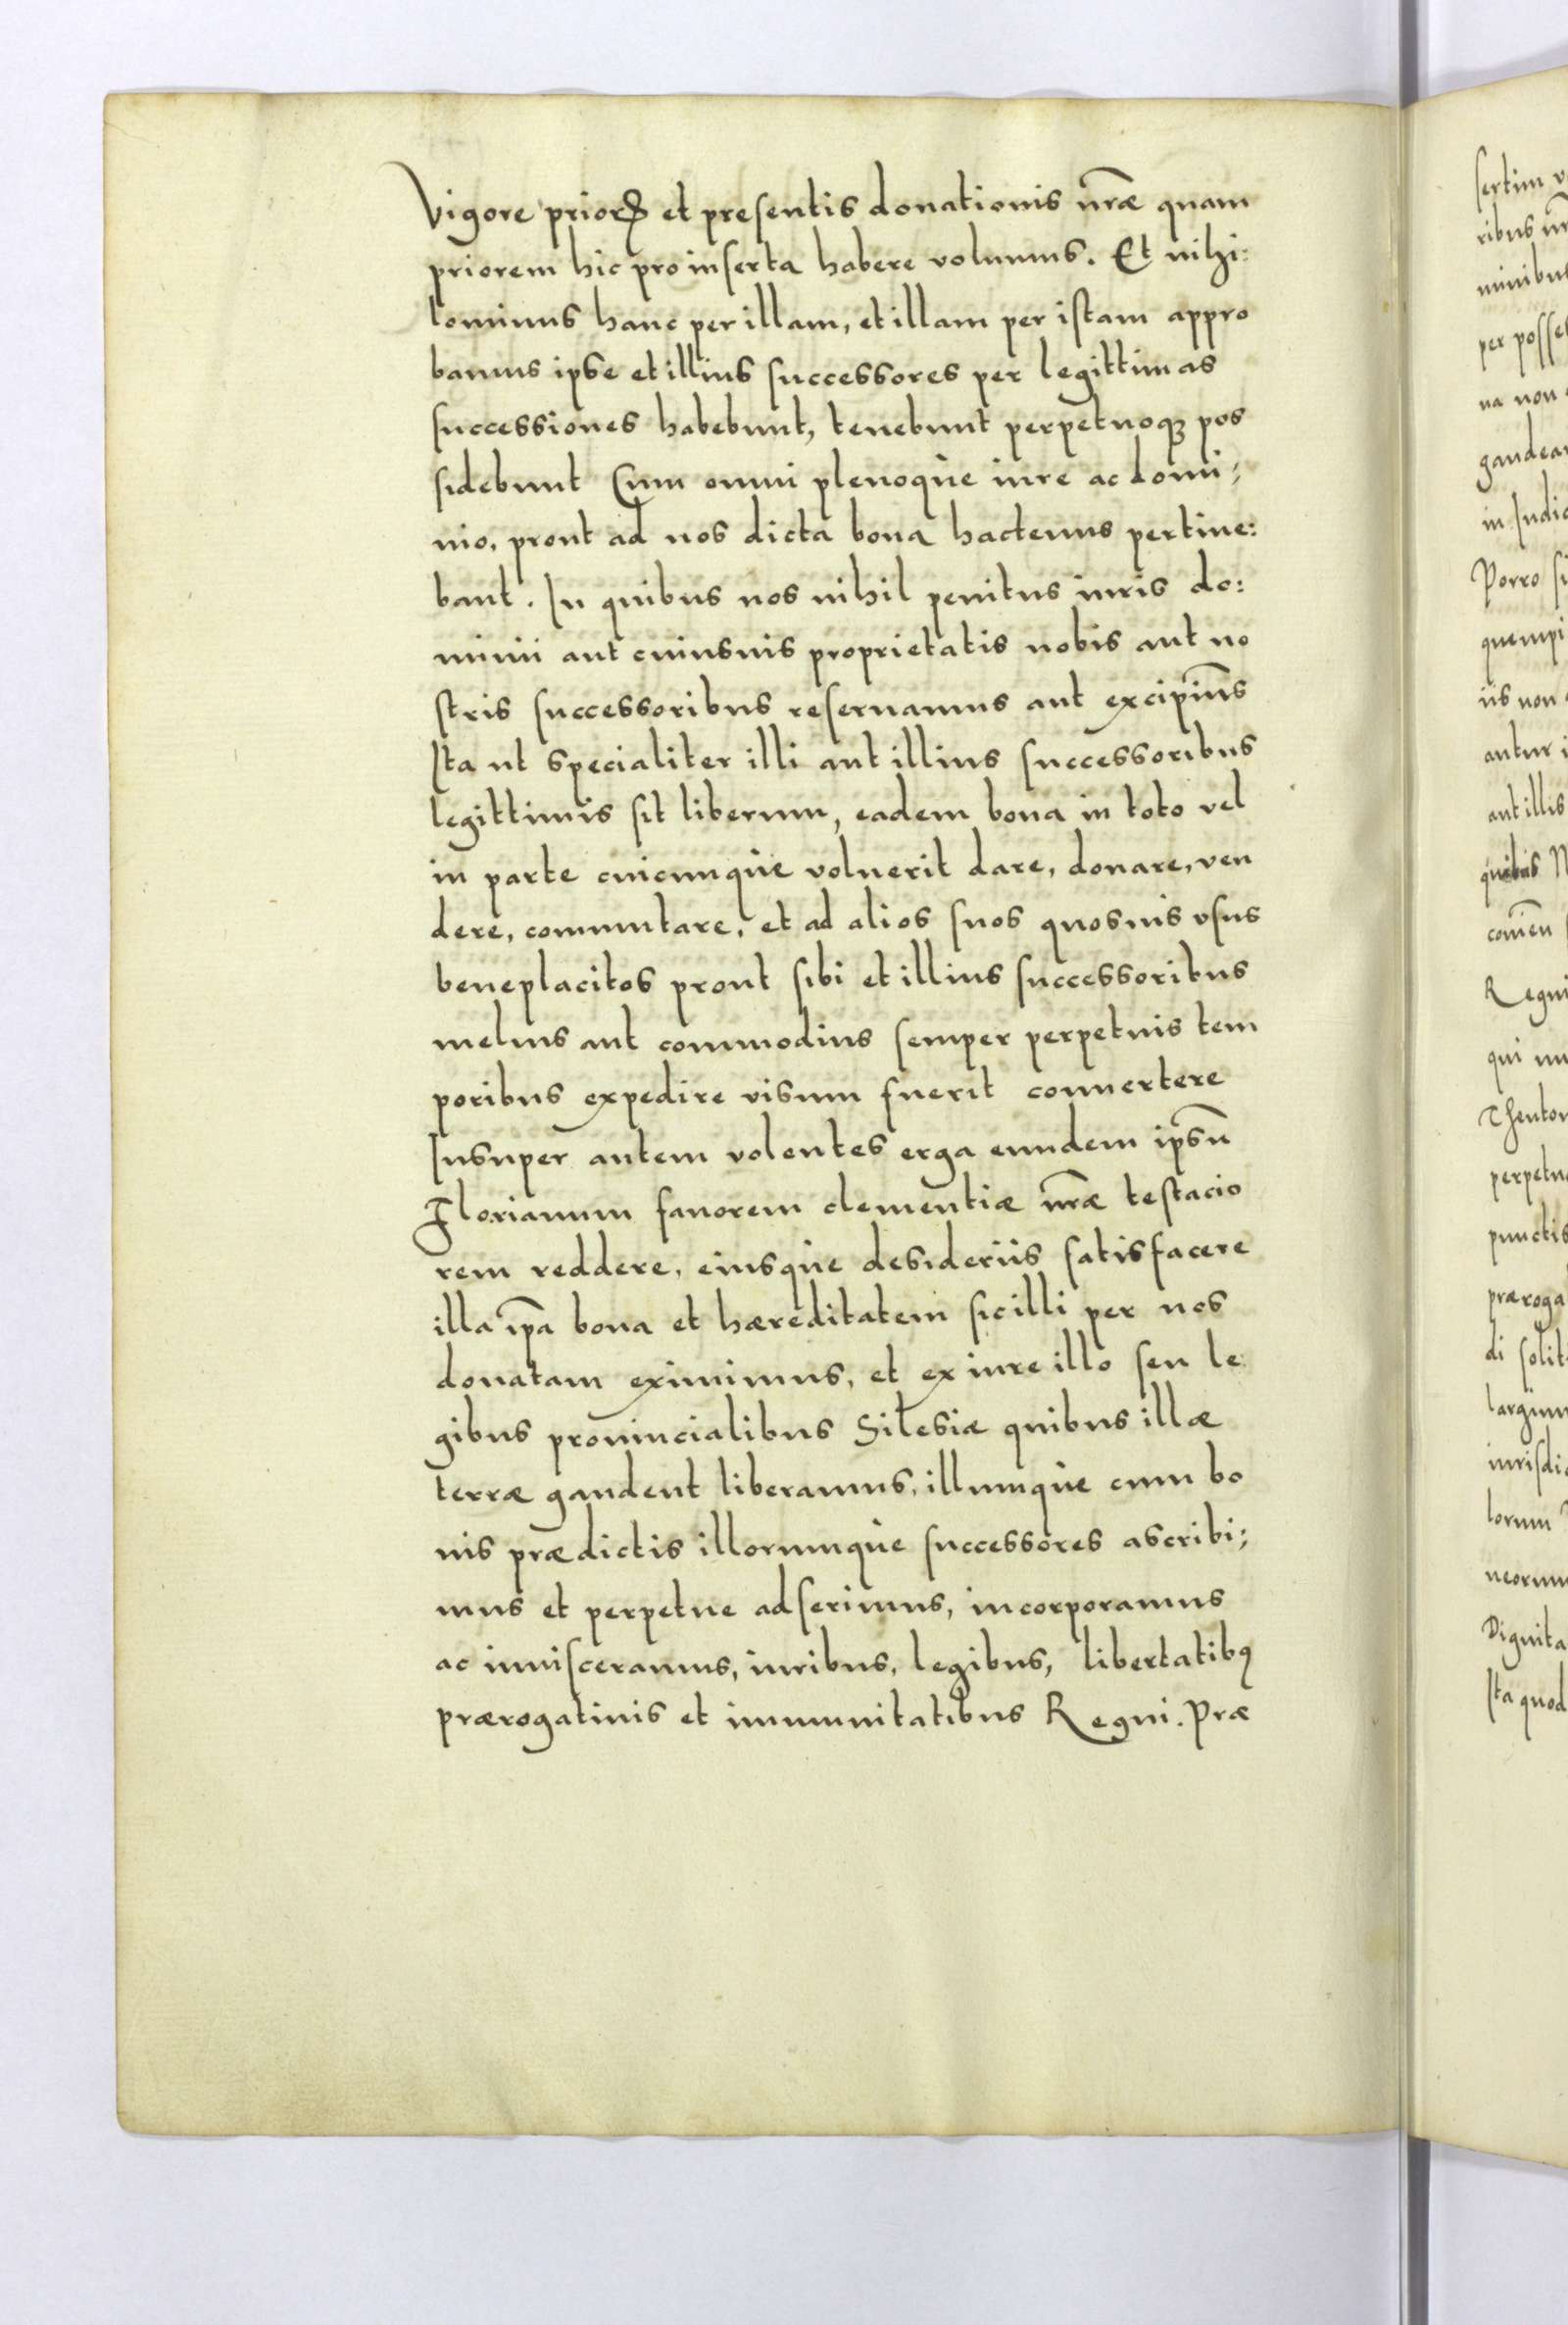 Vigore prioris et presentis donationis nr̃æ quam
priorem hic pro inserta habere volumus. Et nihi:
lominus hanc per illam, et illam per istam appro
bamus ipse et illius successores per legittimas
successiones habebunt, tenebunt perpetuoqꝫ pos
sidebunt Cum omni plenoque iure ac domi;
nio, prout ad nos dicta bona hactenus pertine:
bant. In quibus nos nihil penitus iuris do:
minii aut cuiusuis proprietatis nobis aut no
stris successoribus reseruamus aut excipim̃s
Ita ut specialiter illi aut illius successoribus
legittimis sit liberum, eadem bona in toto vel
in parte cuicunque voluerit dare, donare, ven
dere, commutare, et ad alios suos quosuis vsus
beneplacitos prout sibi et illius successoribus
melius aut commodius semper perpetuis tem
poribus expedire visum fuerit conuertere
Insuper autem volentes erga eundem ipsũ
Florianum fauorem clementiæ nr̃æ testacio
rem reddere, eiusque desideriis satisfacere
illa ip̃a bona et hæreditatem sic illi per nos
donatam eximimus, et ex iure illo seu le
gibus prouincialibus Silesiæ quibus illæ
terræ gaudent liberamus, illumque cum bo
nis prædictis illorumque successores ascribi;
mus et perpetue adserimus, incorporamus
ac inuisceramus, iuribus, legibus, libertatibꝰ
prærogatiuis et immunitatibus Regni. Præ
sertim
ribus
minibus
per
na non
gaudea
in Iudi
Porro si
quempi
iis non
antur i
aut illis
quibus
Regni
qui
Theuton
perpetu
punctis
præroga
di solit
largim
iurisdi
lorum
neorum
Dignita
Ita quod